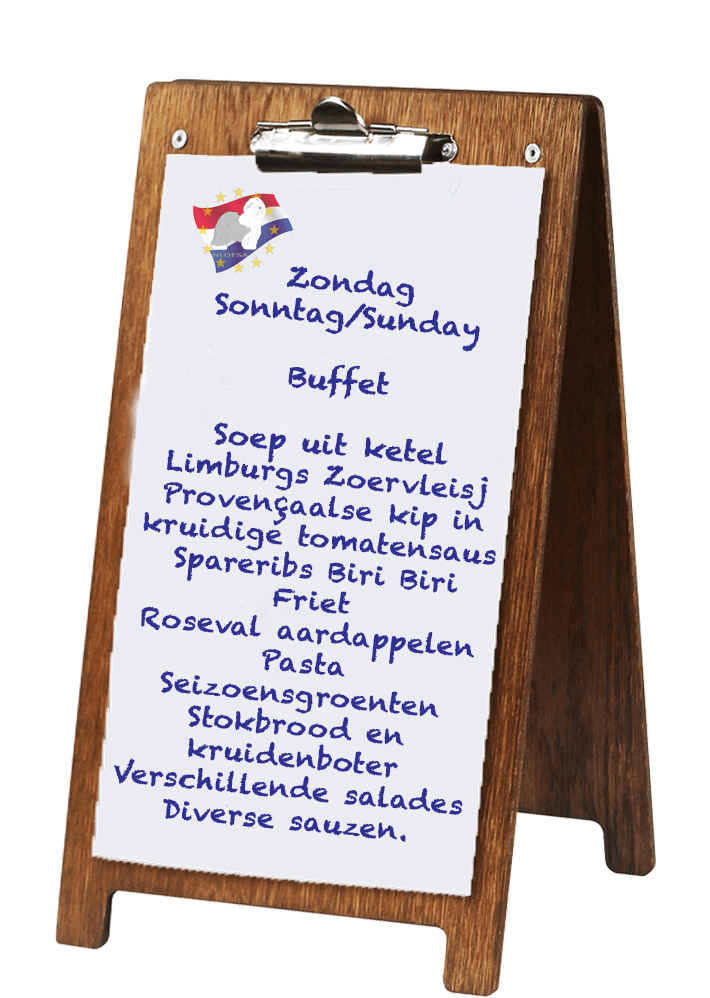 NLOESA
Zondag
Sonntag/Sunday
Buffet
Soep uit ketel
Limburgs Zoervleisj
Provençaalse kip in
kruidige tomatensaus
Spareribs Biri Biri
Friet
Roseval aardappelen
Pasta
Seizoensgroenten
Stokbrood en
kruidenboter
Verschillende salades
Diverse sauzen.